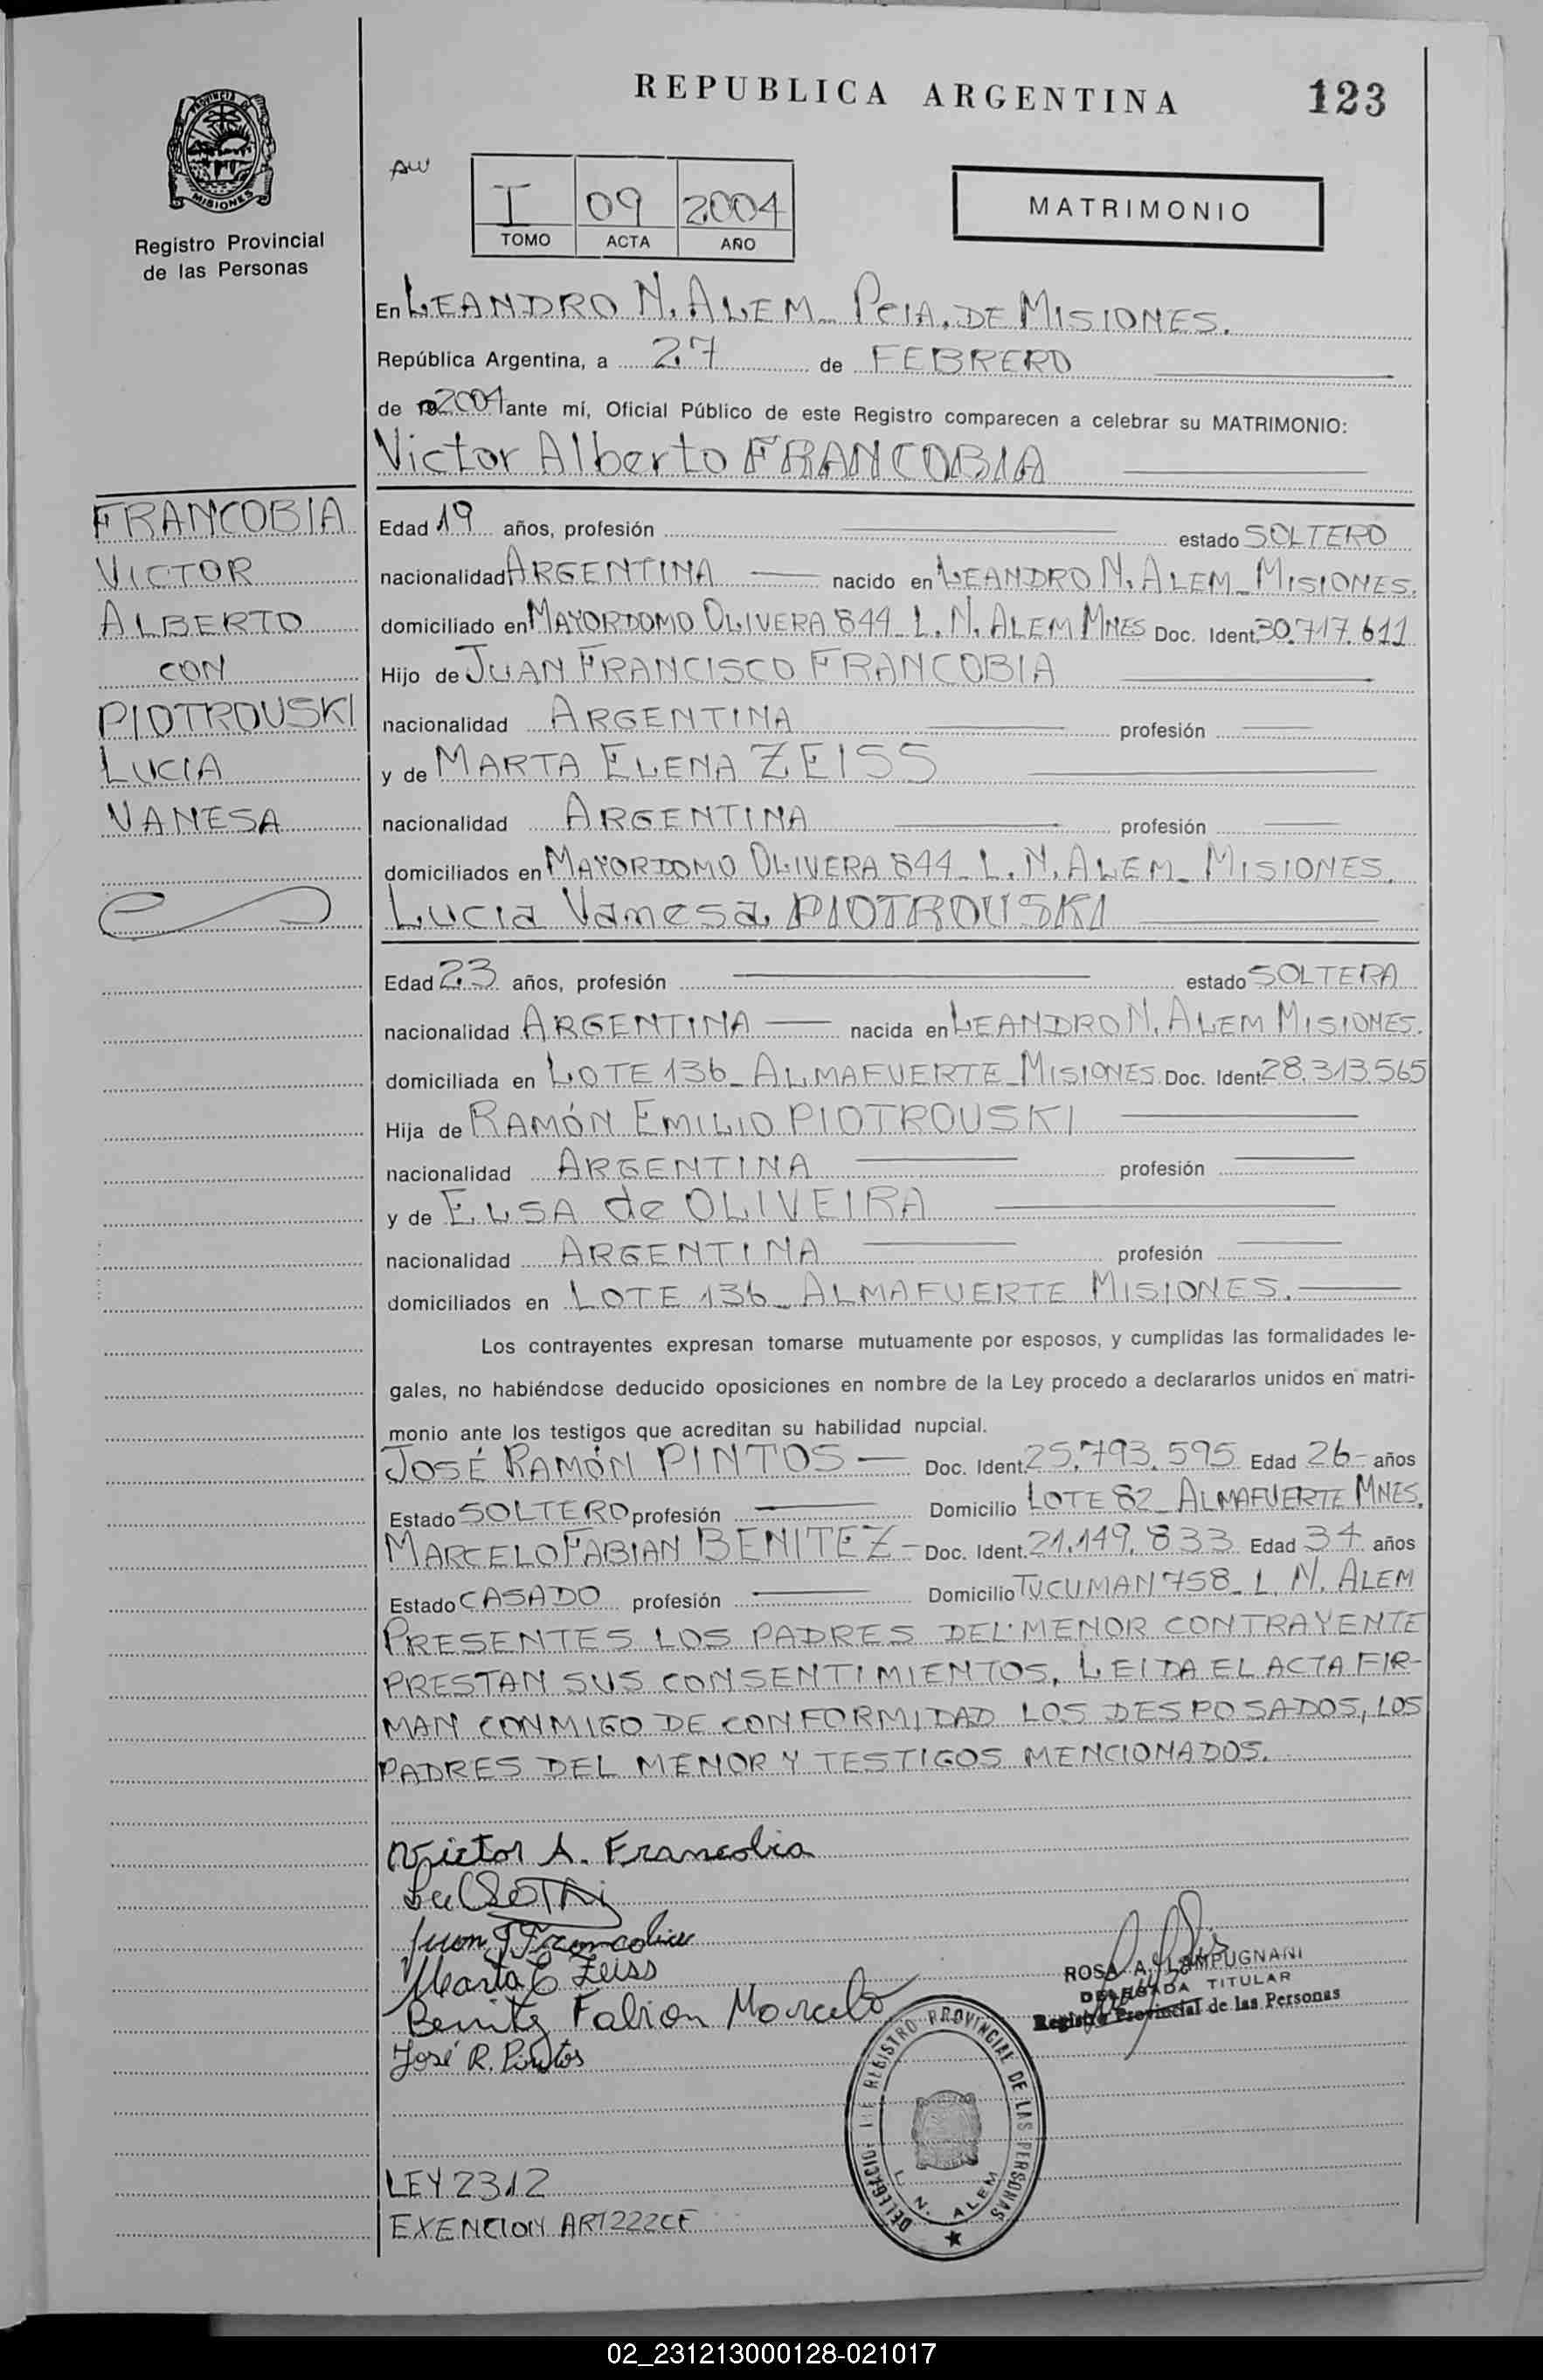 REPUBLICA ARGENTINA
123
PROVINCIA DE
MISIONES
Registro Provincial
de las Personas
AW
I 09 2004
TOMO ACTA AÑO
MATRIMONIO
En LEANDRO N. ALEM_ PCIA. DE MISIONES.
República Argentina, a 27 de FEBRERO
de 2004 ante mí, Oficial Público de este Registro comparecen a celebrar su MATRIMONIO:
Victor Alberto FRANCOBIA
FRANCOBIA
VICTOR
ALBERTO
CON
PIOTROUSKI
LUCIA
VANESA
Edad 19 años, profesión estado SOLTERO
nacionalidad ARGENTINA nacido en LEANDRO N. ALEM_ MISIONES.
domiciliado en MAYORDOMO OLIVERA 844_ L. N. ALEM MNES Doc. Ident. 30.717.611
Hijo de JUAN FRANCISCO FRANCOBIA
nacionalidad ARGENTINA profesión
y de MARTA ELENA ZEISS
nacionalidad ARGENTINA profesión
domiciliados en MAYORDOMO OLIVERA 844_ L. N. ALEM_ MISIONES.
Lucia Vanesa PIOTROUSKI
Edad 23 años, profesión estado SOLTERA
nacionalidad ARGENTINA nacida en LEANDRO N. ALEM MISIONES.
domiciliada en LOTE 136_ ALMAFUERTE_ MISIONES. Doc. Ident. 28.313.565
Hija de RAMÓN EMILIO PIOTROUSKI
nacionalidad ARGENTINA profesión
y de ELSA de OLIVEIRA
nacionalidad ARGENTINA profesión
domiciliados en LOTE 136_ ALMAFUERTE MISIONES.
Los contrayentes expresan tomarse mutuamente por esposos, y cumplidas las formalidades le-
gales, no habiéndose deducido oposiciones en nombre de la Ley procedo a declararlos unidos en matri-
monio ante los testigos que acreditan su habilidad nupcial.
JOSÉ RAMÓN PINTOS Doc. Ident. 25.793.595 Edad 26 años
Estado SOLTERO profesión Domicilio LOTE 82_ ALMAFUERTE MNES.
MARCELO FABIAN BENITEZ Doc. Ident. 21.149.833 Edad 34 años
Estado CASADO profesión Domicilio TUCUMAN 758_ L. N. ALEM
PRESENTES LOS PADRES DEL MENOR CONTRAYENTE
PRESTAN SUS CONSENTIMIENTOS. LEIDA EL ACTA FIR-
MAN CONMIGO DE CONFORMIDAD LOS DESPOSADOS, LOS
PADRES DEL MENOR Y TESTIGOS MENCIONADOS.
Victor A. Francobia
Juan F Francobia
Marta E Zeiss
Benitez Fabian Marcelo
José R. Pintos
ROSA A. LAMPUGNANI
DELEGADA TITULAR
Registro Provincial de las Personas
DELEGACION DE REGISTRO PROVINCIAL DE LAS PERSONAS
L. N. ALEM
LEY 2312
EXENCION ART 222 CF
02_231213000128-021017